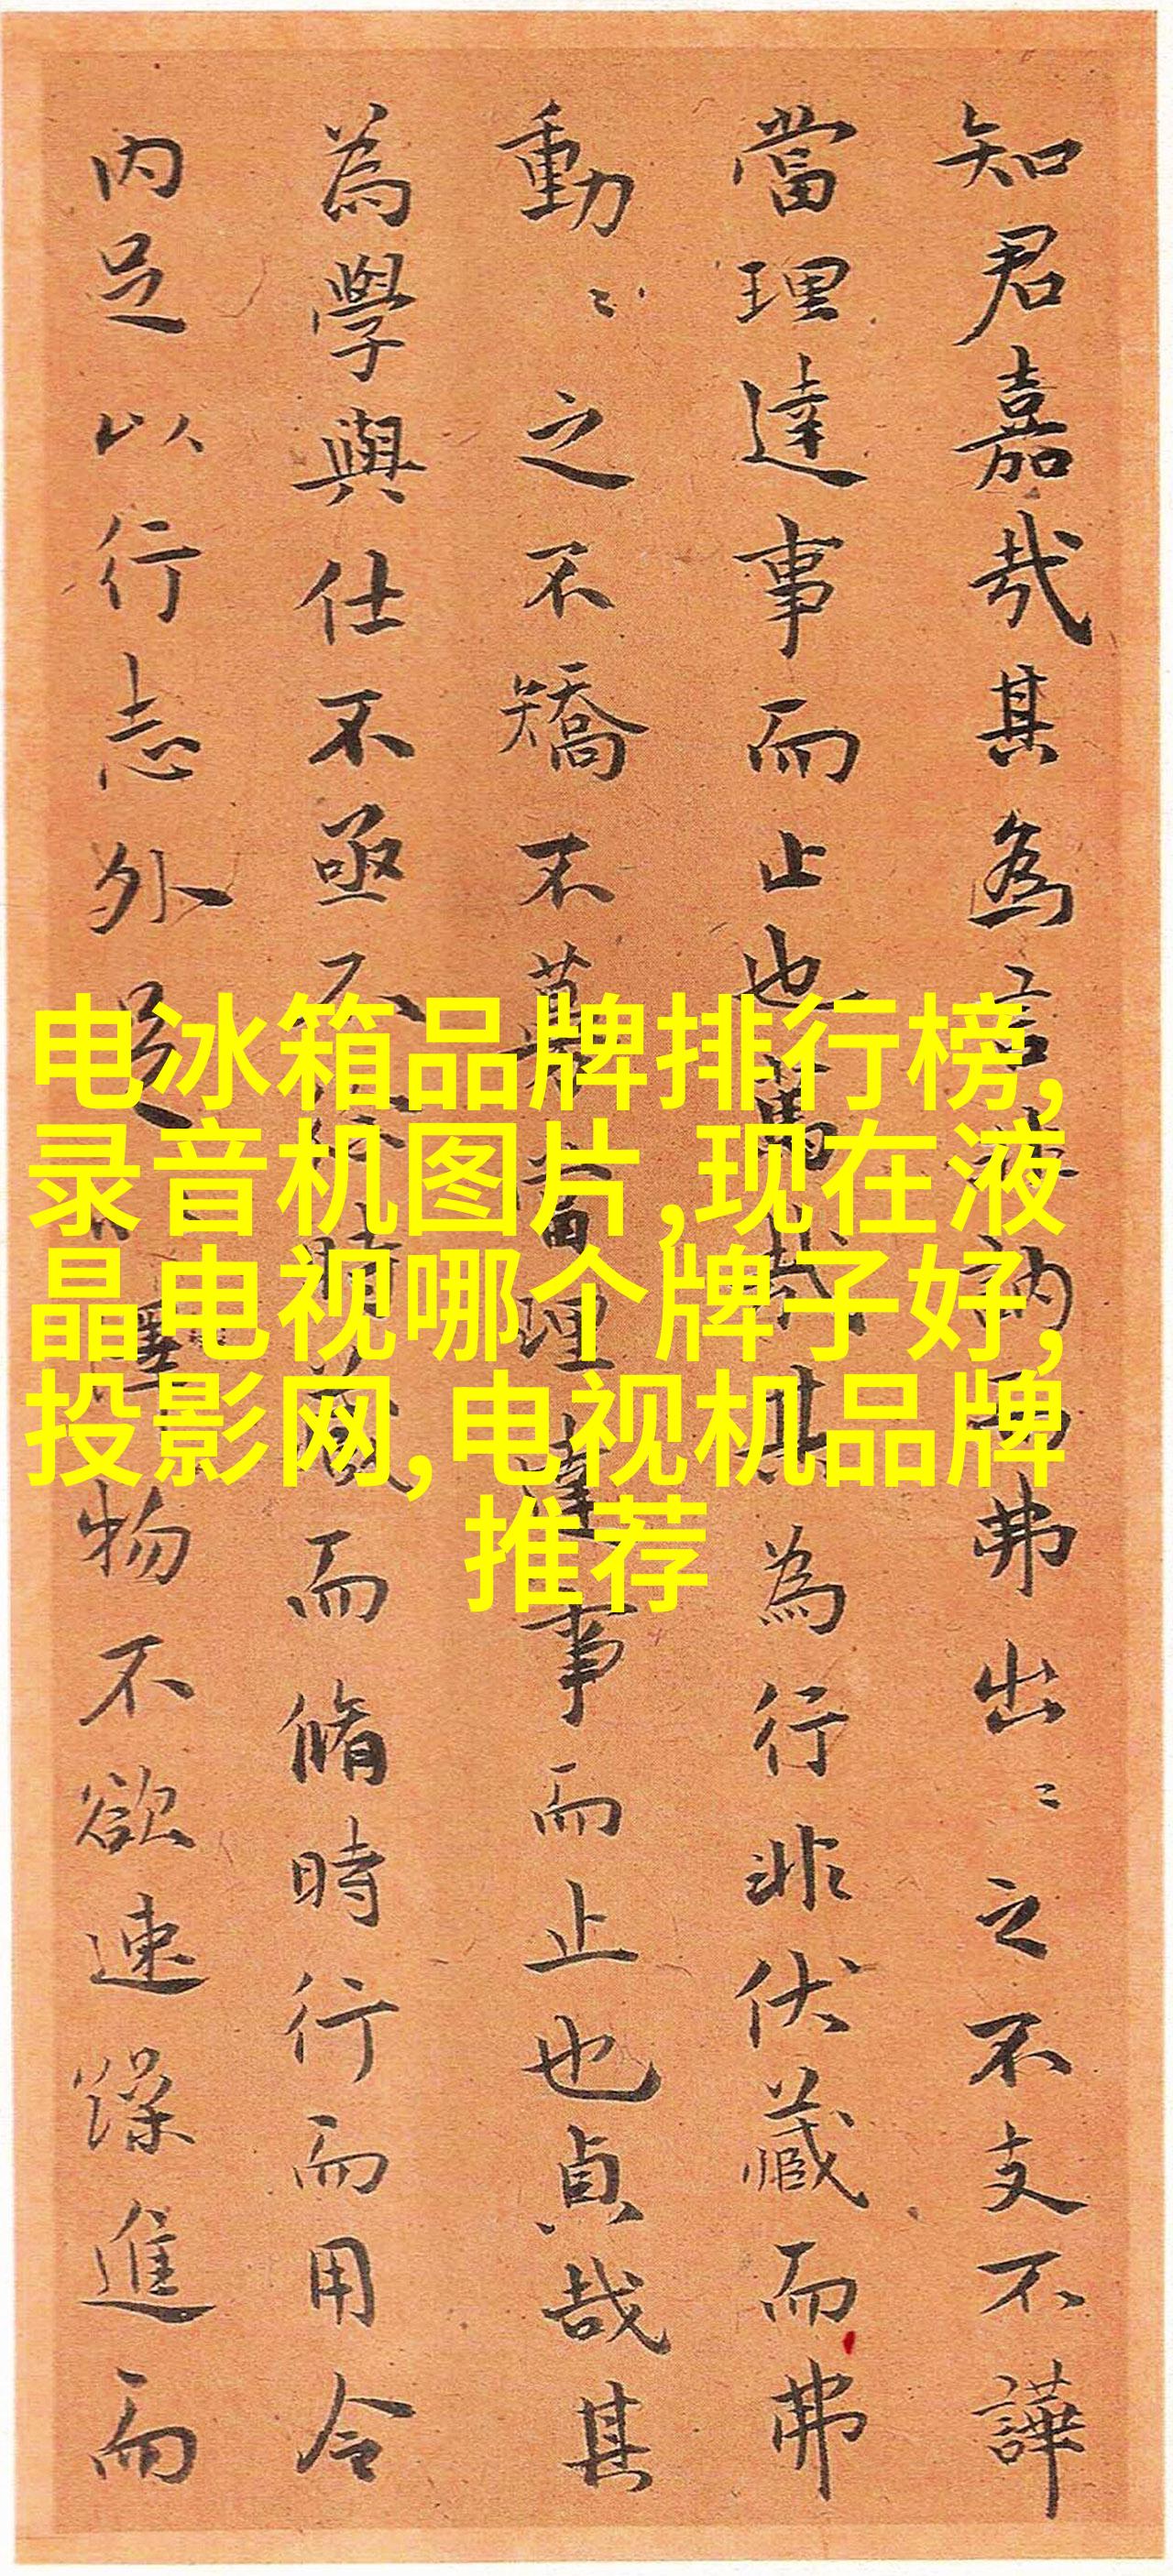 知君嘉哉其為言
訥而弗出〻之不支不譁
當理達事而止也萬哉其為行非伏藏而弗
動〻之不矯不慕當理達事而止也貞哉其
為學與仕不亟不時
而脩時行而用令
内足以行志外足
物不欲速躁進而
电冰箱品牌排行榜,
录音机图片,现在液
晶电视哪个牌子好,
投影网,电视机品牌
推荐